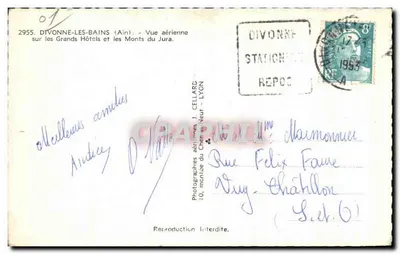 2955. DIVONNE-LES-BAINS (Ain). - Vue aérienne
sur les Grands Hôtels et les Monts du Jura.
DIVONNE
STATION DE
REPOS
1953
A
Meilleures amitiés
Photographies aériennes J. CELLARD
10, montée du Chemin-Neuf - LYON
Mme
Rue Felix Faure
Viry-Châtillon
(S.et O)
Reproduction Interdite.